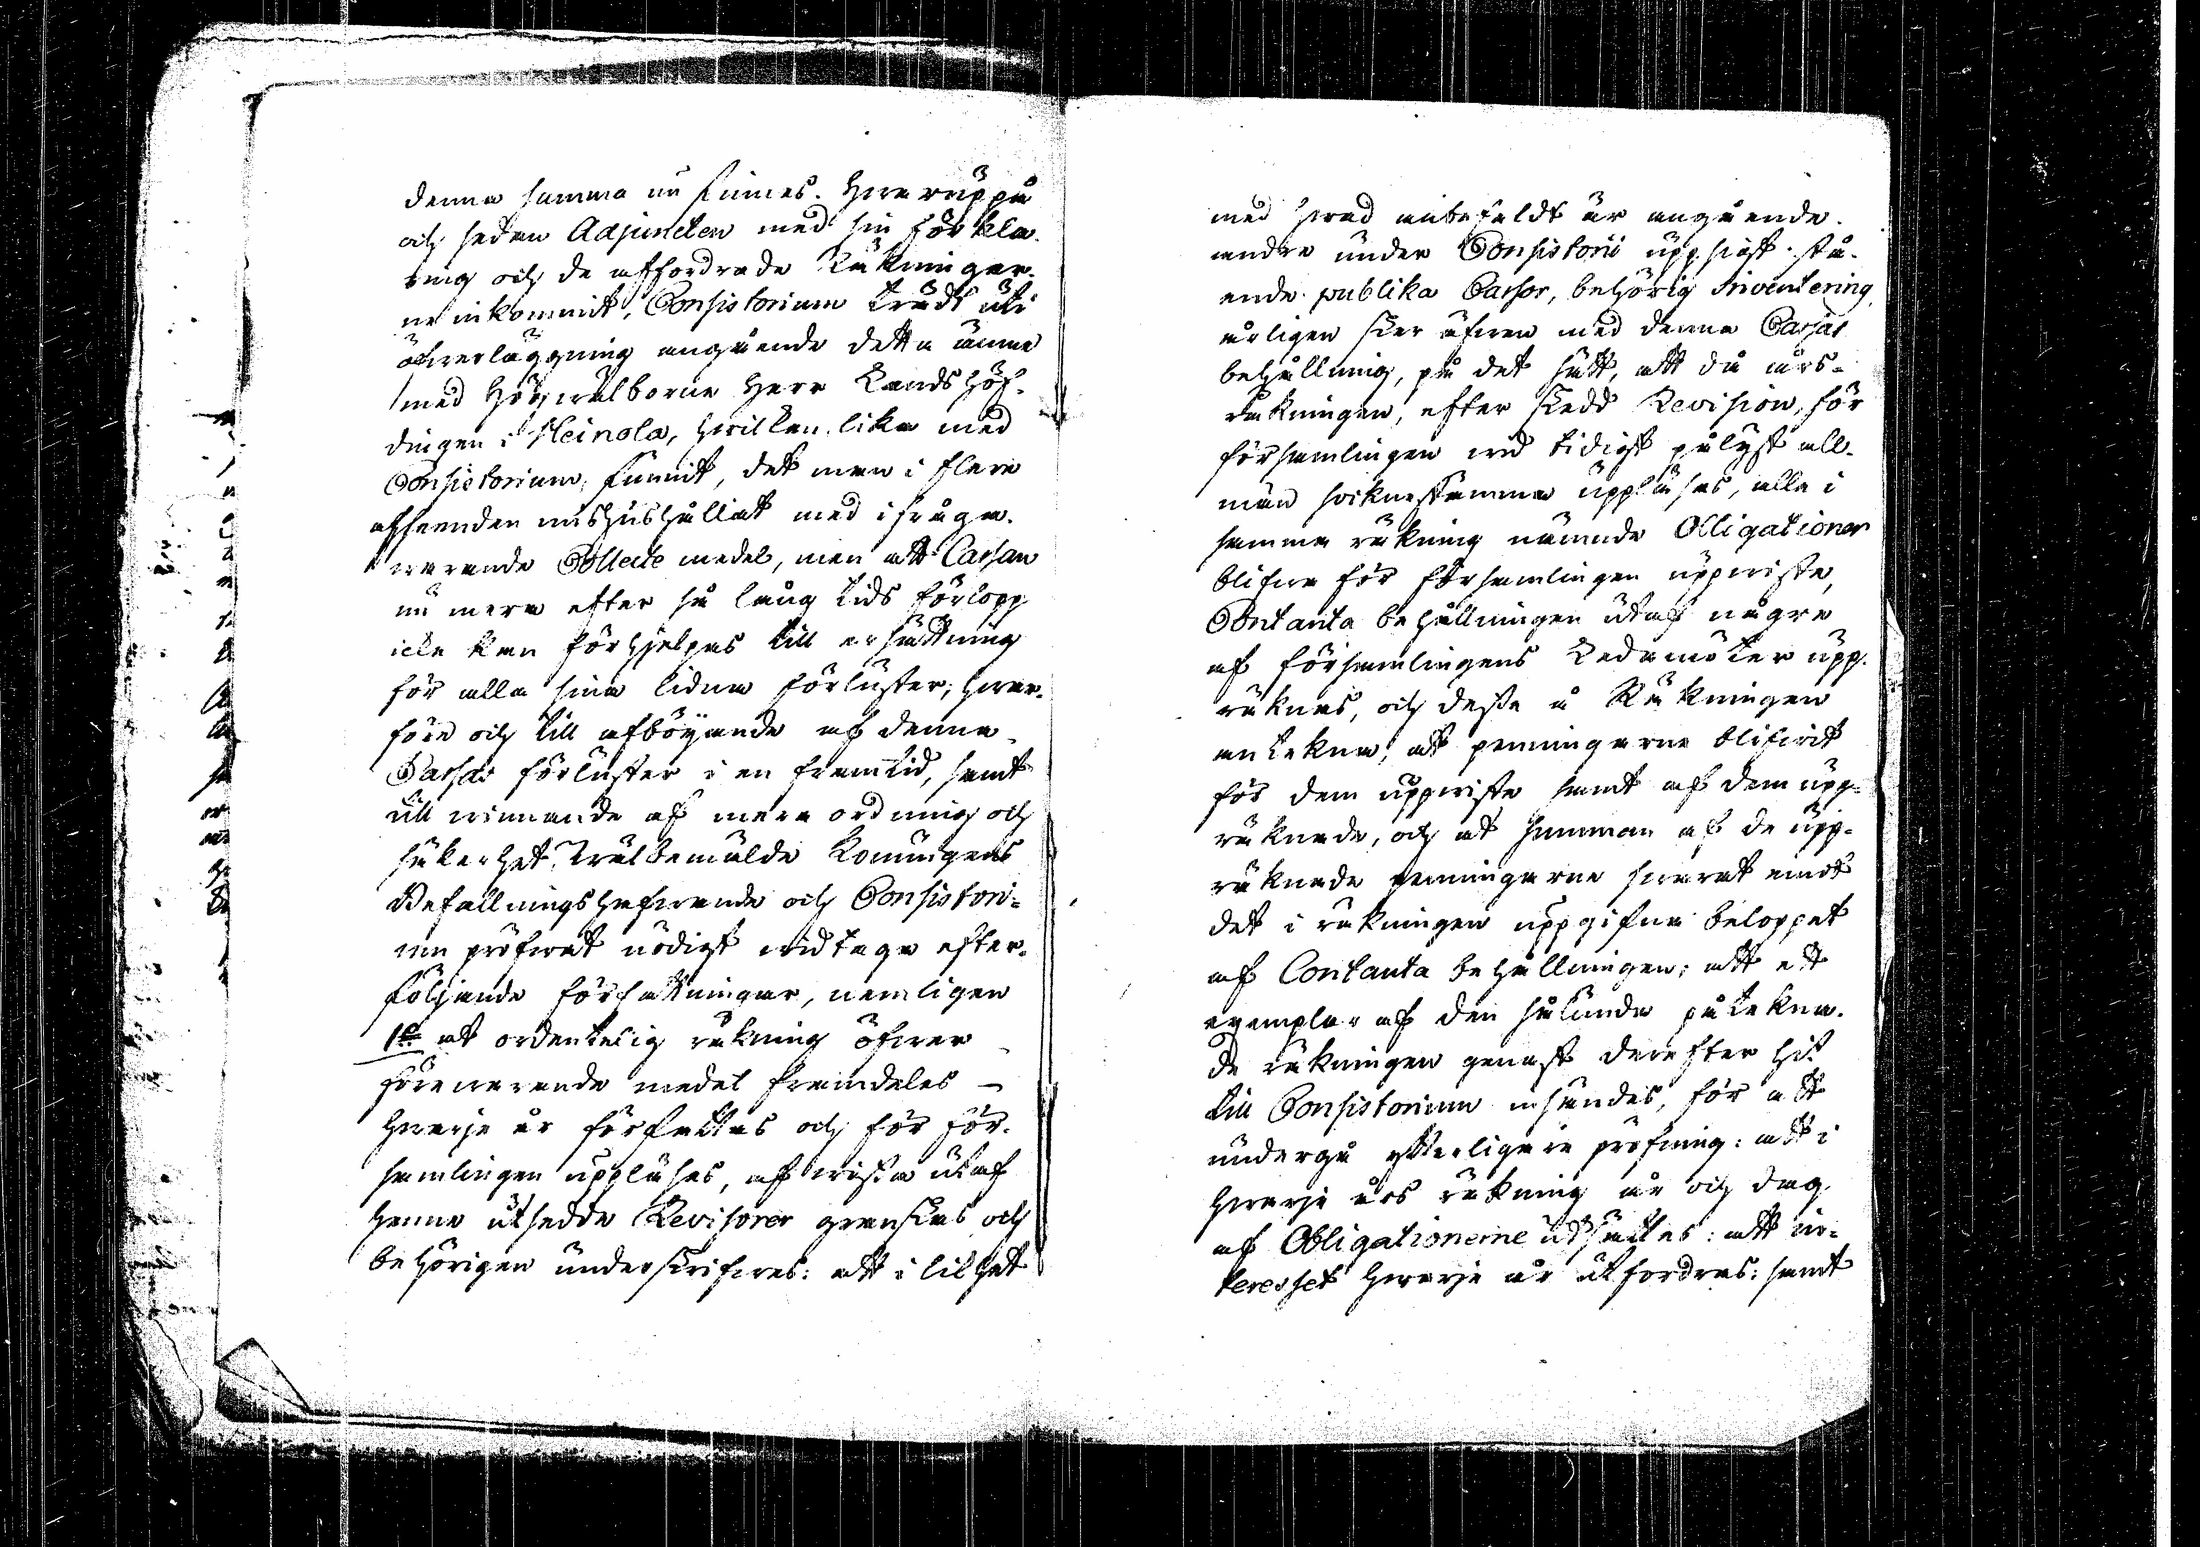 denna summa nu finnes. Hwaruppå
och sedan Adjuncten med sin förkla-
ring och de affordrade Räkningar-
ne inkommit, Consistorium trädt uti
öfverläggning angående detta ämne
med Högwälborne Herr Landshöf-
dingen i Heinola, hwilken lika med
Consistorium funnit, det man i flere
afseenden mishushållat med ifråga-
warande Collecte medel, men att Cassan
nu mera efter så lång tids förlopp
icke kan förhjelpas till ersättning
för alla sina lidna förluster; hwar-
före och till afböjande af denna
Cassas förluster i en framtid, samt
till winnande af mera ordning och
säkerhet, Wälbemälde Konungens
Befallningshafwande och Consistori-
um pröfwat nödigt widtaga efter-
följande författningar, nemligen
1o at ordentelig räkning öfwer
förewarande medel framdeles
hwarje år författas och för för-
samlingen uppläses, af wissa utaf
henne utsedde Revisorer granskas och
behörigen underskrifwes: att i likhet
med hwad anbefaldt är angående
andre under Consistorii uppsigt stå-
ende publika Cassor, behörig Inventering
årligen sker äfwen med denna Cassas
behållning, på det sätt, att då års-
räkningen, efter skedd Revision, för
församlingen wid tidigt pålyst all-
män socknestämma uppläses, alla i
samma räkning nämnde Obligationer
blifwa för församlingen uppwiste,
Contanta behållningen utaf någre
af församlingens Ledamöter upp-
räknas, och desse å Räkningen
antekna, att penningarne blifwit
för dem uppwiste samt af dem upp-
räknade, och at summan af de upp-
räknade penningarne swarat emot
det i räkningen uppgifna beloppet
af Contanta behållningen; att ett
exemplar af den sålunda påtekna-
de räkningen genast derefter hit
till Consistorium insändes, för att
undergå ytterligare pröfning: att i
hwarje års räkning år och dag
af Obligationerne utsättes: att in-
teresset hwarje år utfordras: samt